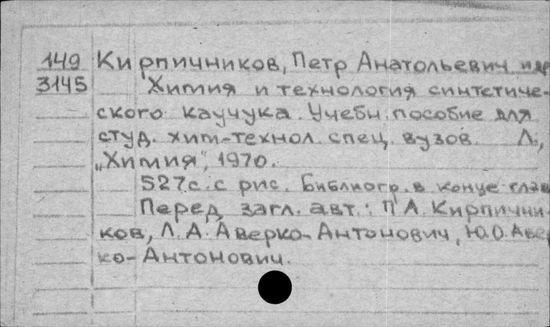 149 Кирпичников, Петр Анатольевич и др
3145 Химия и технология синтетиче-
ского каучука. Учебн. пособие для
студ. хим-технол. спец. вузов. Л.,
„Химия", 1970.
527.с. с рис. Библиогр. в конце глав
Перед загл. авт.: П А. Кирпични-
ков, Л. А. Аверко-Антонович, Ю.О. Авер
ко-Антонович.